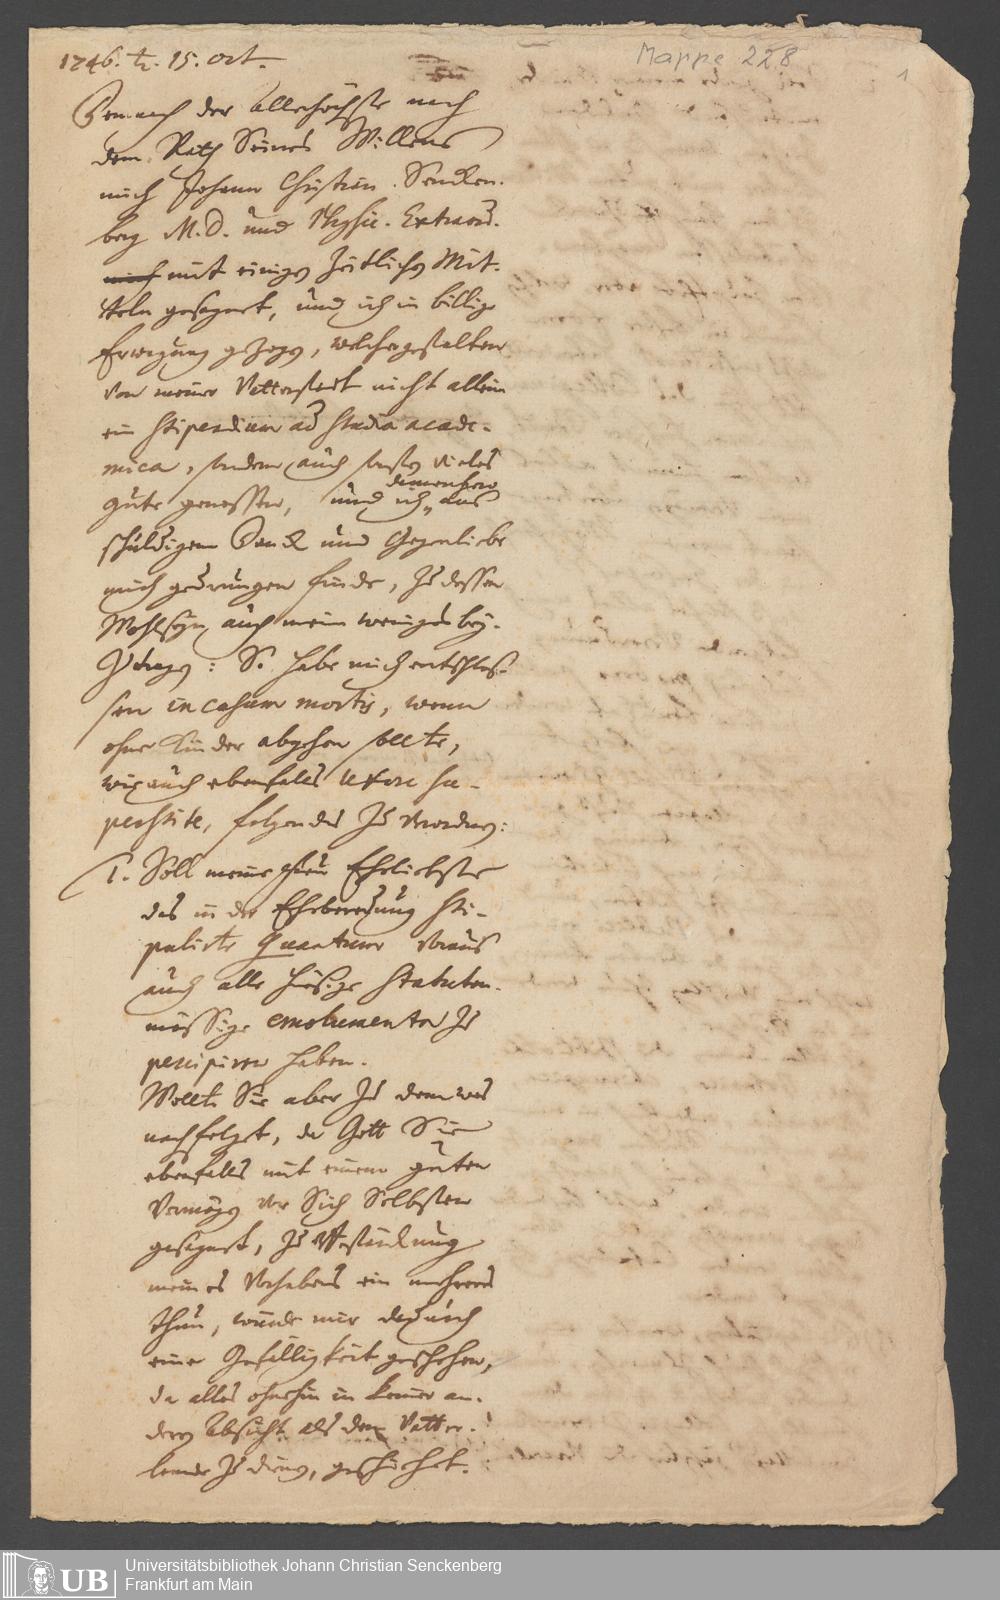 1746. ♄. 15. oct.
Mappe 228
1
Demnach der Allerhöchste nach
dem Rath Seines Willens
mich Johann Christian Sencken-
berg M.D. und Physic. Extraord.
mich mit einigen Zeitlichen Mit-
teln gesegnet, und ich in billige
Erwegung gezogen, welchergestalten
von meiner Vatterstadt nicht allein
ein stipendium ad studia acade-
mica, sondern auch sonsten vieles
gute genossen, und ich dannenhero aus
schuldigem Danck und Gegenliebe
mich gedrungen finde, zu dessen
Wohlseyn auch mein weniges bey-
zutragen: So habe mich entschlos-
sen in casum mortis, wenn
ohne Kinder abgehen sollte,
wie auch ebenfalls uxore su-
perstite, folgendes zu verordnen:
1. Soll meine Frau Eheliebste
das in der Eheberedung sti-
pulirte Quantum voraus
auch alle hiesige Statuten-
mässige emolumenta zu
percipiren haben.
Wollte Sie aber zu dem was
nachfolget, da Gott Sie
ebenfalls mit einem guten
Vermögen vor Sich Selbsten
gesegnet, zu Verstärckung
meines Vorhabens ein mehreres
thun, würde mir dadurch
eine Gefälligkeit geschehen,
da alles ohnehin in keiner an-
dern Absicht als dem Vatter-
lande zu dienen, geschiehet.
UB
Universitätsbibliothek Johann Christian Senckenberg
Frankfurt am Main